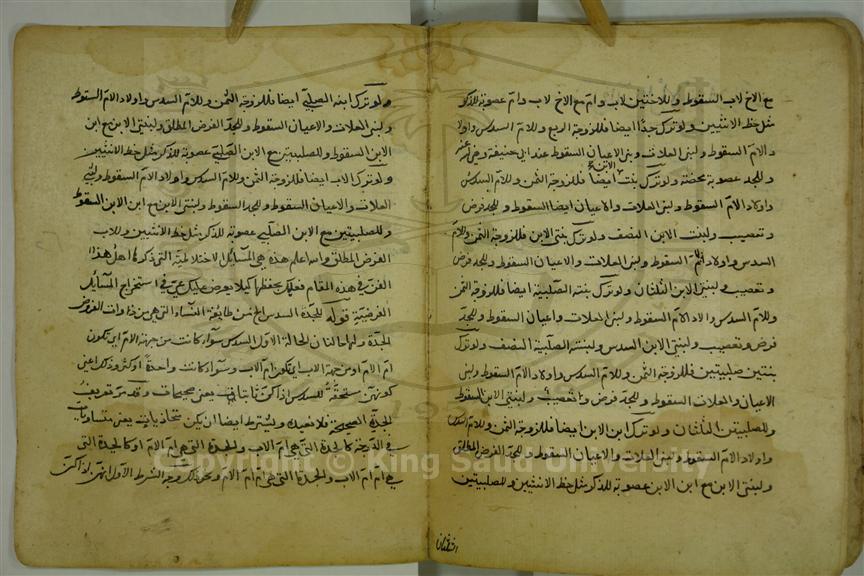 مع الاخ لاب السقوط وللاختين لاب وام مع الاخ لاب وام عصوبة للذكر
مثل حظ الانثيين ولو ترك جدا ايضا فللزوجة الربع وللام السدس واولا
د الام السقوط ولبنى العلات وبنى الاعيان السقوط عند ابى حنيفة رضى عنه
وللجد عصوبة محضة ولو ترك بنت الابن ايضا فللزوجة الثمن وللام السدس
واولاد الام السقوط ولبنى العلات والاعيان ايضا السقوط وللجد فرض
وتعصيب ولبنت الابن النصف ولو ترك بنتى الابن فللزوجة الثمن وللام
السدس واولاد الام السقوط ولبنى العلات والاعيان السقوط وللجد فرض
وتعصيب ولبنتى الابن الثلثان ولو ترك بنته الصلبية ايضا فللزوجة الثمن
وللام السدس واولاد الام السقوط ولبنى العلات واعيان السقوط وللجد
فرض وتعصيب ولبنتى الابن السدس ولبنته الصلبية النصف ولو ترك
بنتين صلبيتين فللزوجة الثمن وللام السدس واولاد الام السقوط ولبنى
الاعيان والعلات السقوط وللجد فرض وتعصيب ولبنتى الابن السقوط
وللصلبيتين الثلثان ولو ترك ابن الابن ايضا فللزوجة الثمن وللام السدس
واولاد الام السقوط ولبنى العلات والاعيان السقوط وللجد الفرض المطلق
ولبنتى الابن مع ابن الابن عصوبة للذكر مثل حظ الانثيين وللصلبيتين
الثلثان
ولو ترك ابنه الصلبى ايضا فللزوجة الثمن وللام السدس واولاد الام السقوط
ولبنى العلات والاعيان السقوط وللجد الفرض المطلق ولبنتى الابن مع ابن
الابن السقوط وللصلبيتين مع الابن الصلبى عصوبة للذكر مثل حظ الانثيين
ولو ترك الاب ايضا فللزوجة الثمن وللام السدس واولاد الام السقوط ولبنى
العلات والاعيان السقوط وللجد السقوط ولبنتى الابن مع ابن الابن السقوط
وللصلبيتين مع الابن الصلبى عصوبة للذكر مثل حظ الانثيين وللاب
الفرض المطلق والله اعلم هذه هى المسائل الاختلاطية التى ذكرها اهل هذا
الفن فى هذه المقام فعليك بحفظها كيلا يعرض عليك عى فى استخراج المسائل
الفرضية قوله للجدة السدس الخ من طائفة النساء التى هى من ذوات الفروض
الجدة ولها حالتان الحالة الاولى السدس سواء كانت من جهة الام اى تكون
ام الام او من جهة الاب اى تكون ام الاب وسواء كانت واحدة او اكثر وذلك اعنى
كونهن مستحقة للسدس اذا كن ثابتات يعنى صحيحات وقد مر تعريف
الجدة الصحيحة فلا نعيده ويشترط ايضا ان يكن متحاذيات يعنى متساويات
فى الدرجة كالجدة التى هى ام الاب والجدة التى هى ام الام او كالجدة التى
هى ام ام الاب والجدة التى هى ام ام الام ونحو ذلك وجه الشرط الاول انهن اذا كن